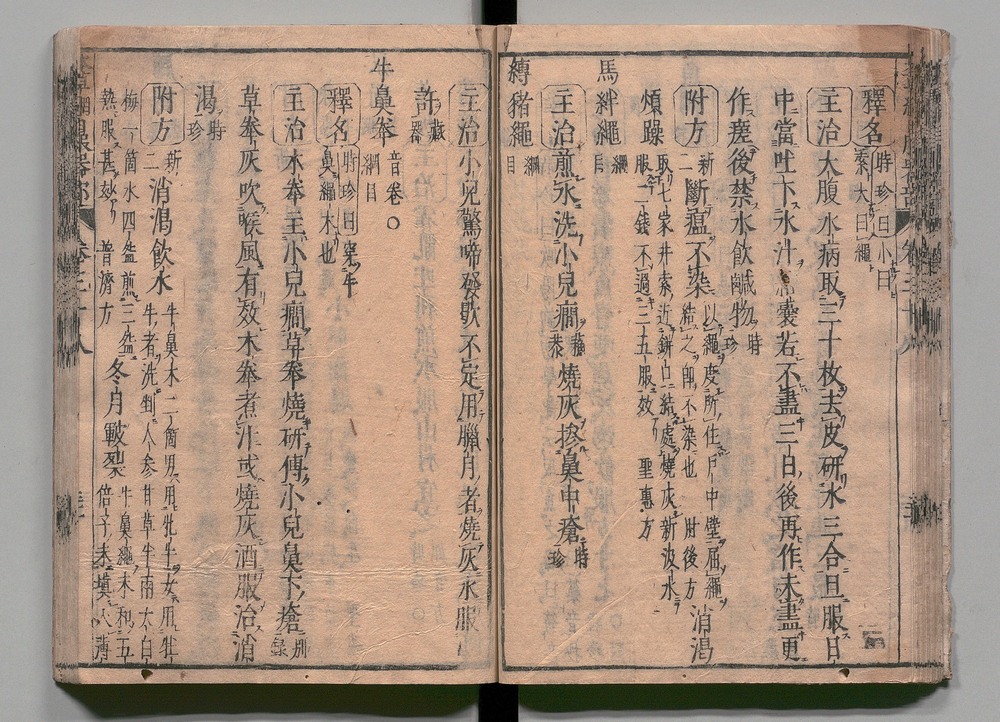 釋名 時珍曰小曰
索大曰繩
主治 大腹水病取三十枚去皮研水三合旦服日
中當吐下水汁結囊若不盡三日後再作未盡更
作瘥後禁水飲鹹物 時珍
附方 新二 斷瘟不染 以繩度所住戶中壁屈繩結之即不染也 肘後方 消渴
煩躁 取七家井索近缾口結處燒灰新汲水服二錢不過三五服效 聖惠方
馬絆繩 綱目
主治 煎水洗小兒癇 蘇恭 燒灰摻鼻中瘡 時珍
縛猪繩 綱目
主治 小兒驚啼發歇不定用臘月者燒灰水服
許 藏器
牛鼻牶 音卷〇綱目
釋名 時珍曰穿牛鼻繩木也
主治 木牶主小兒癇草牶燒研傅小兒鼻下瘡 別錄
草牶灰吹喉風有效木牶煮汁或燒灰酒服治消
渴 時珍
附方 新二 消渴飲水 牛鼻木二箇男用牝牛女用牡牛者洗剉人參甘草半兩大白
梅一箇水四盌煎三盌熱服甚妙 普濟方 冬月皸裂 牛鼻繩末和五倍子末填入薄